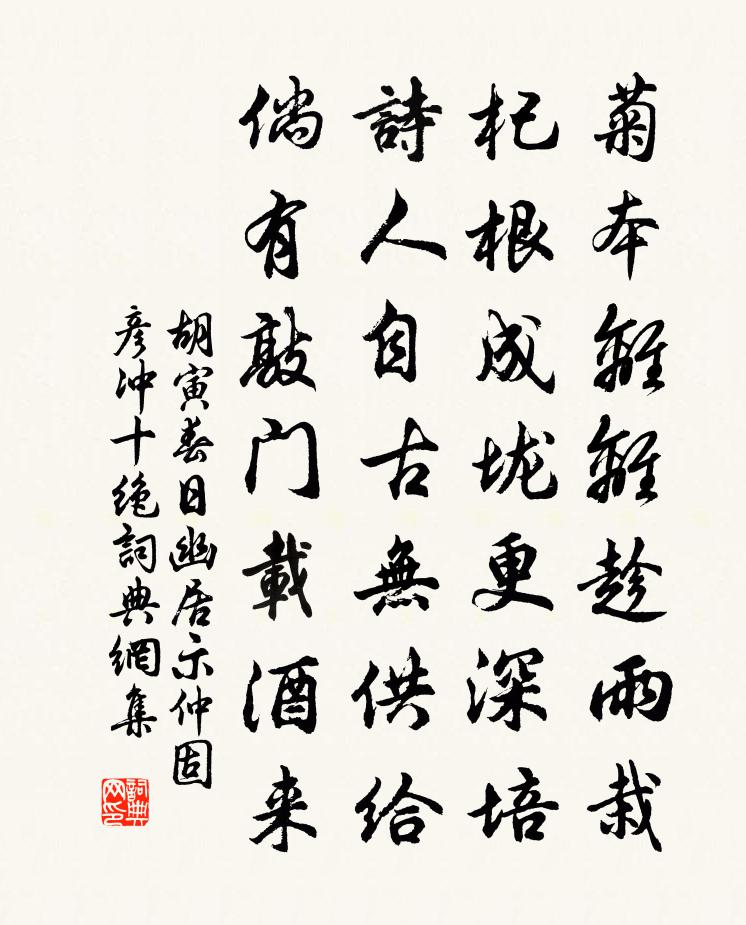 菊本離離趁雨栽
杞根成垅更深培
詩人自古無供給
倘有敲門載酒来
胡寅春日幽居示仲固
彦冲十绝詞典網集
詞典网印